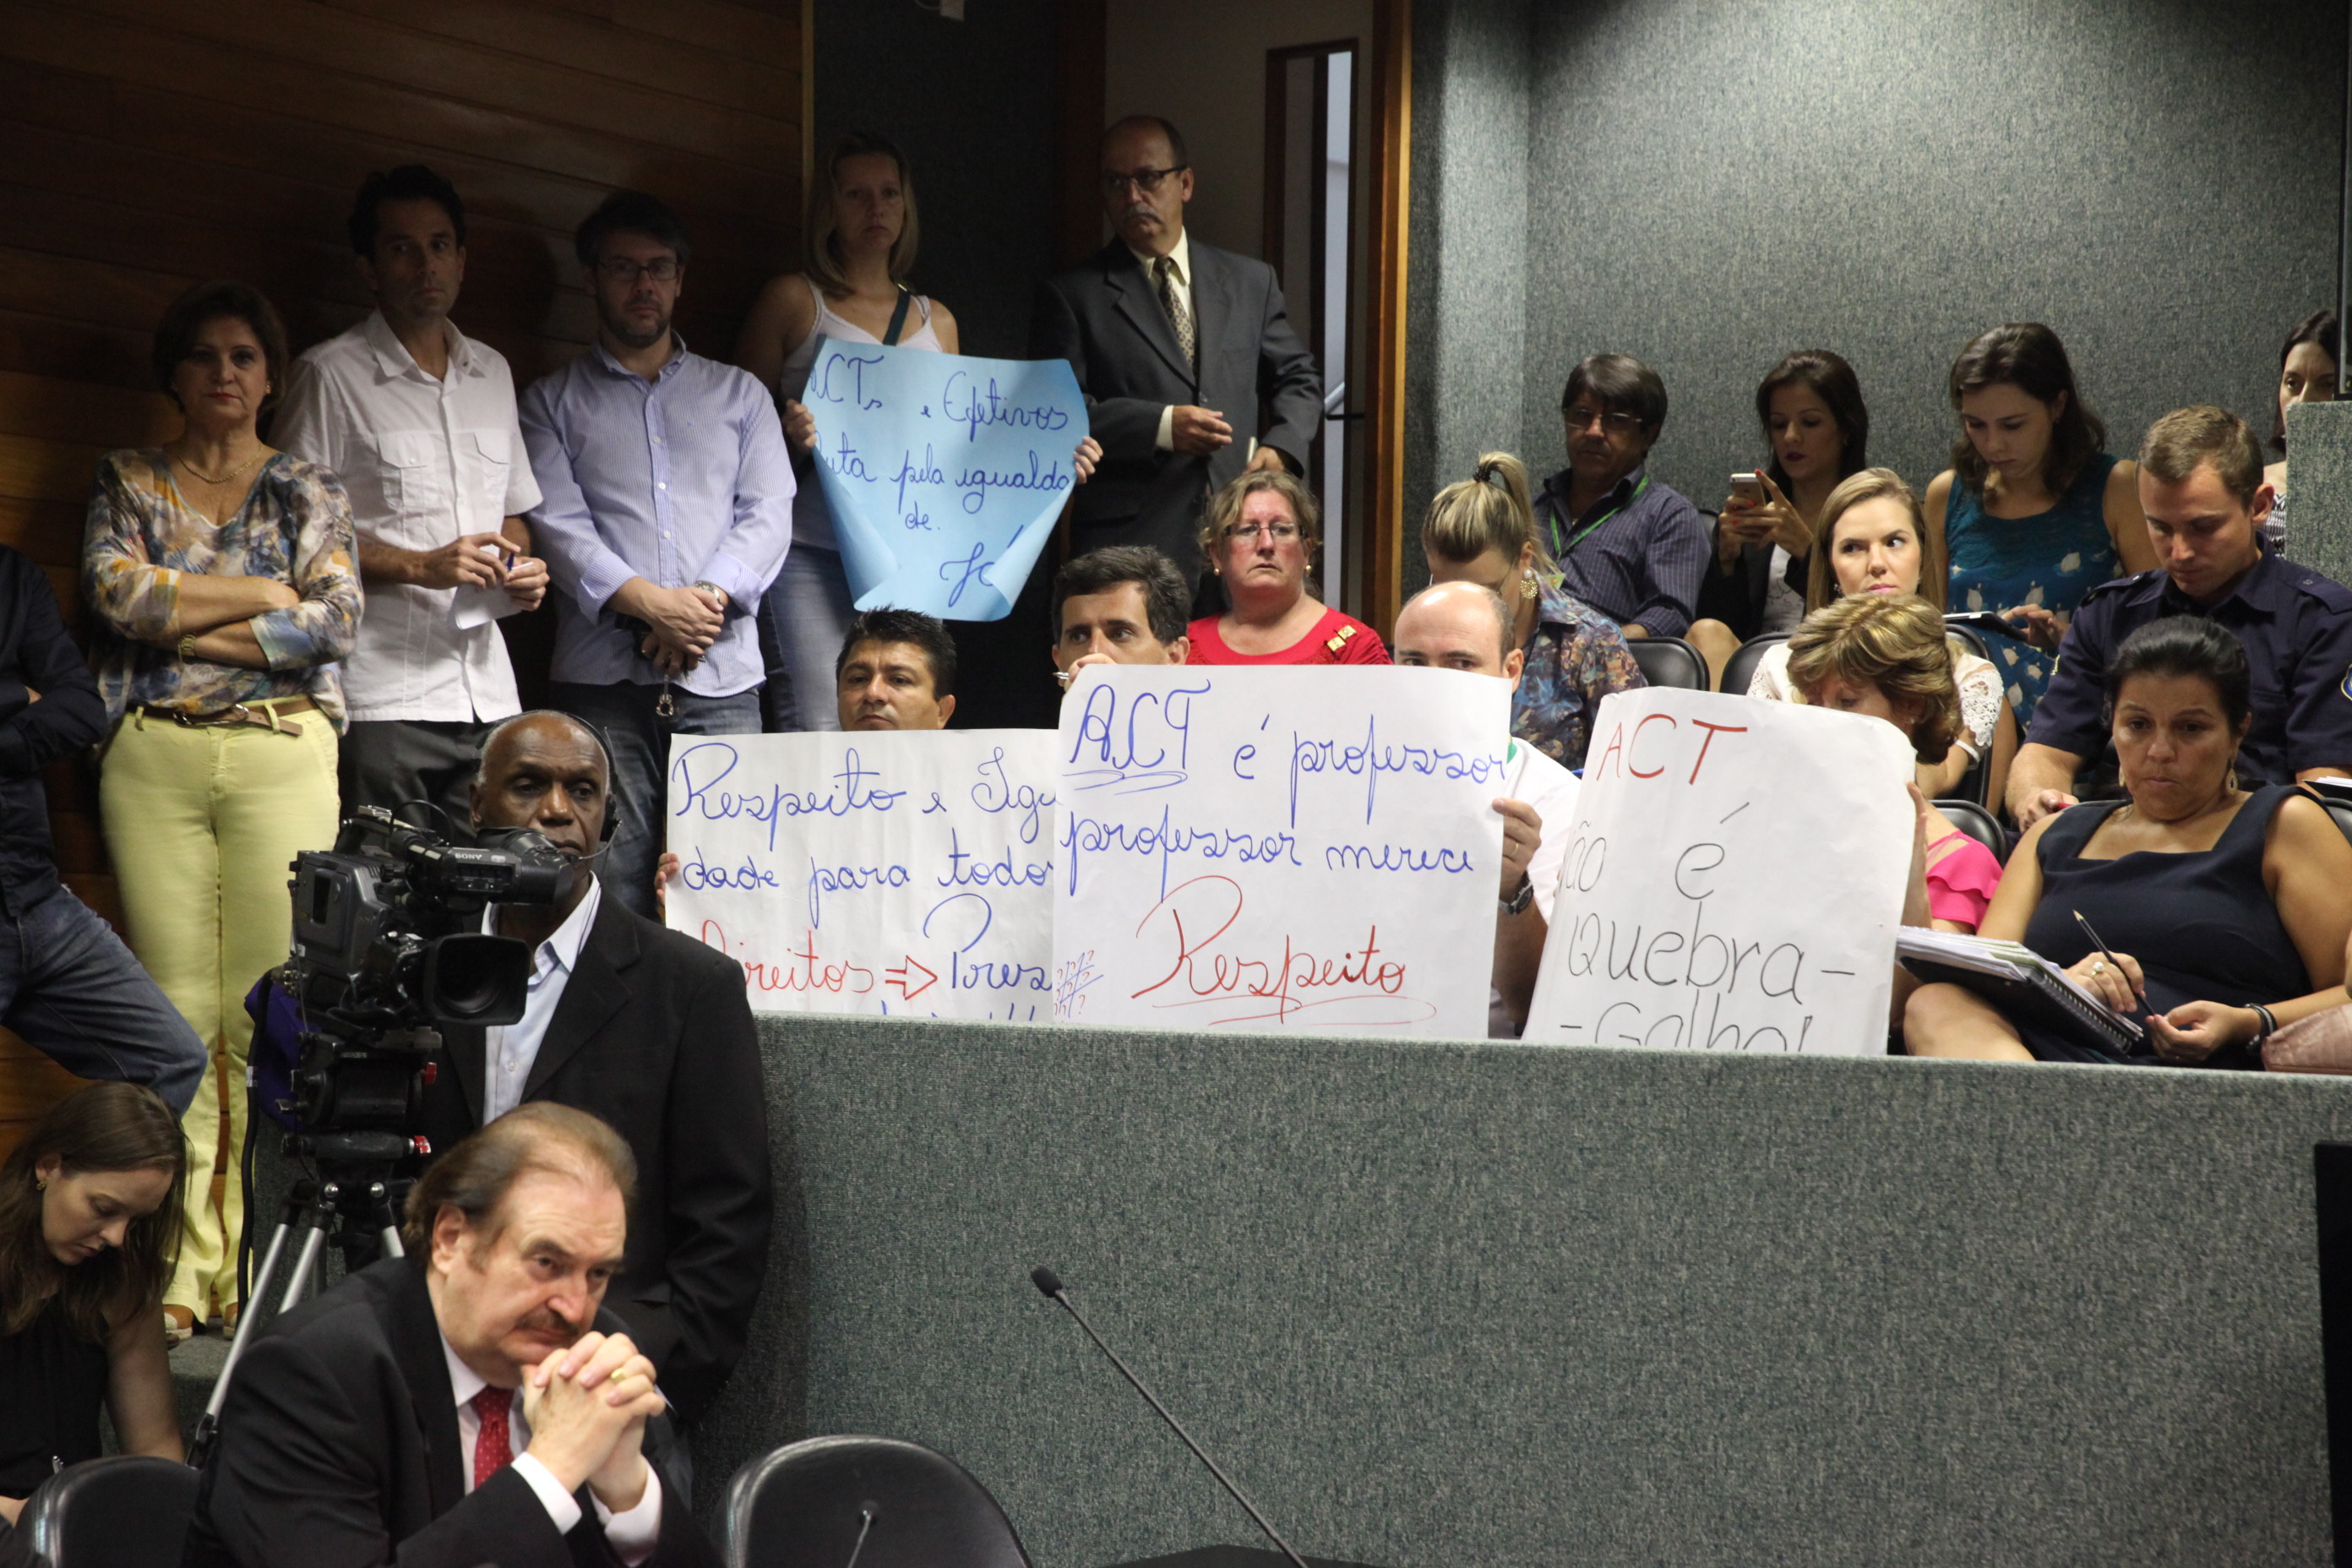 ACTs e Efetivos
luta pela igualda
de.
Já
Respeito e Igu
dade para todo
Direitos ⇒ Pres
ACT é professor
professor merece
Respeito
ACT
ão é
Quebra-
-Galho!
SONY